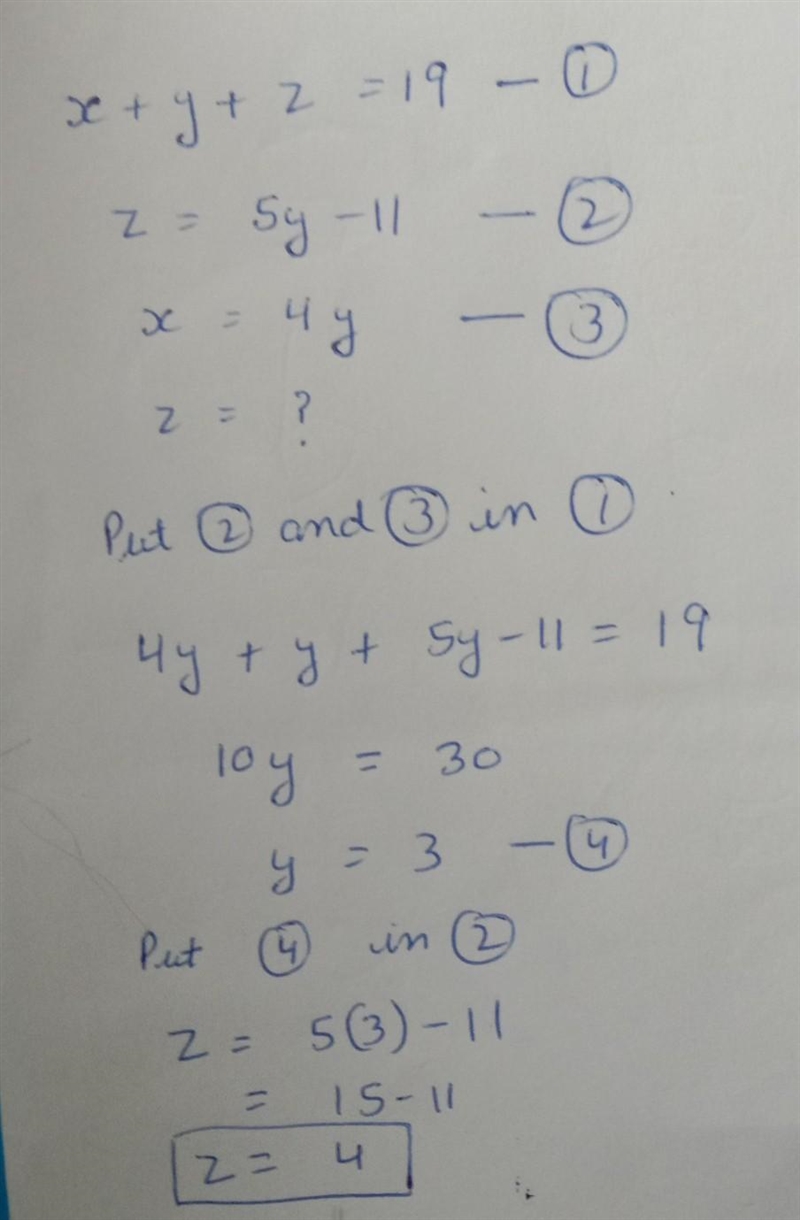 x + y + z = 19 — ①
z = 5y - 11 — ②
x = 4y — ③
z = ?
Put ② and ③ in ①
4y + y + 5y - 11 = 19
10y = 30
y = 3 — ④
Put ④ in ②
z = 5(3) - 11
= 15 - 11
z = 4